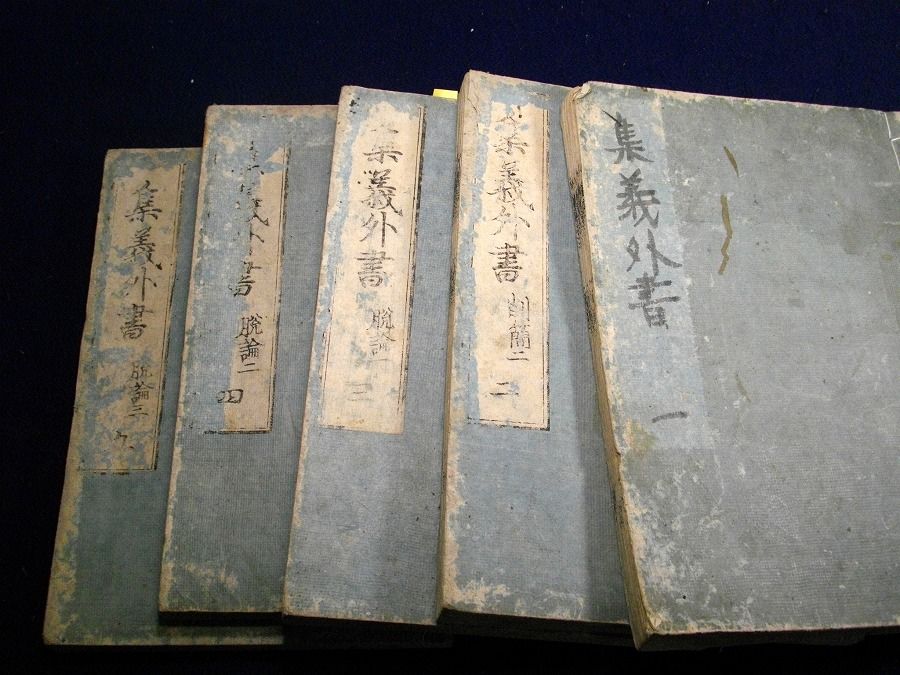 集義外書
一
集義外書
削簡二
二
集義外書
脱論一
三
義外書
脱論二
四
集義外書
脱論三